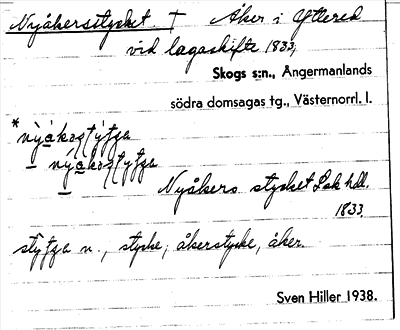 Nyåkersstycket † Åker i Yttered
vid lagaskifte 1833,
Skogs s:n., Ångermanlands
södra domsagas tg., Västernorrl. l.
Nyåkers stycket Lsk hdl.
1833.
n., stycke, åkerstycke, åker.
Sven Hiller 1938.